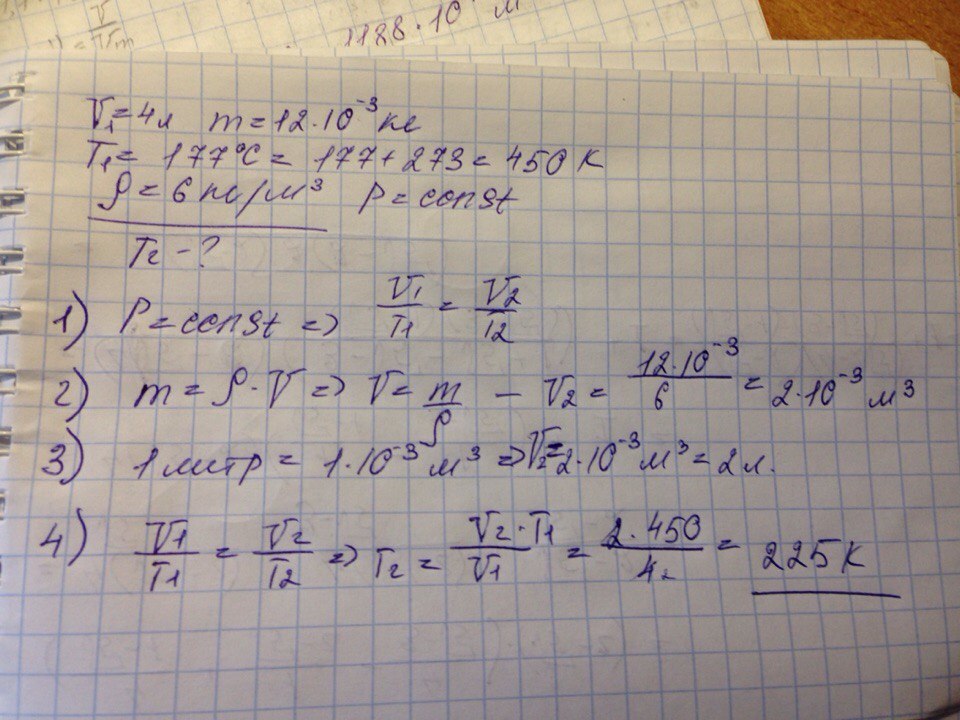 1188·10 м
V₁=4л m=12·10⁻³кг
T₁= 177°C= 177+273=450K
ρ=6кг/м³ P=const
T₂-?
1) P=const => V₁/T₁ = V₂/T₂
2) m=ρ·V => V=m/ρ – V₂= 12·10⁻³/6 = 2·10⁻³м³
3) 1литр= 1·10⁻³м³ => V₂=2·10⁻³м³=2л.
4) V₁/T₁ = V₂/T₂ => T₂= V₂·T₁/V₁ = 2·450/4 = 225K